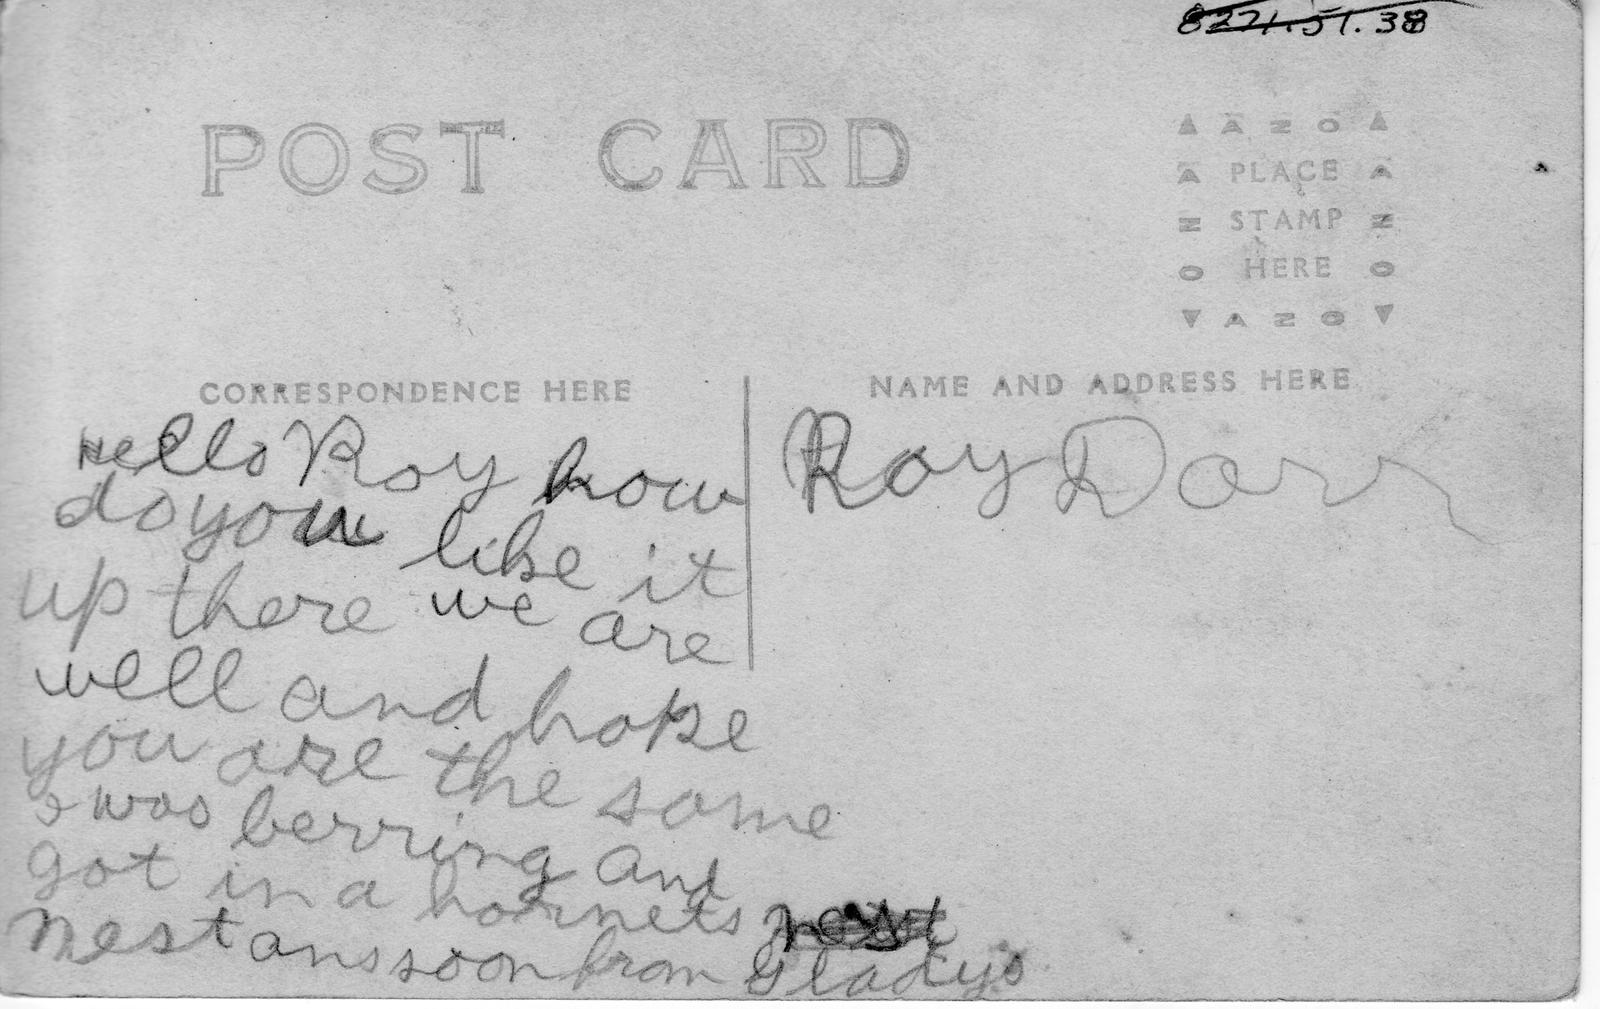 8221.51.38
POST CARD
AZO
A PLACE A
Z STAMP Z
O HERE O
AZO
CORRESPONDENCE HERE
NAME AND ADDRESS HERE
Hello Roy how
do you like it
up there we are
well and hope
you are the same
I was berring and
got in a hornets
nest ans soon from Gladys
Roy Dorr